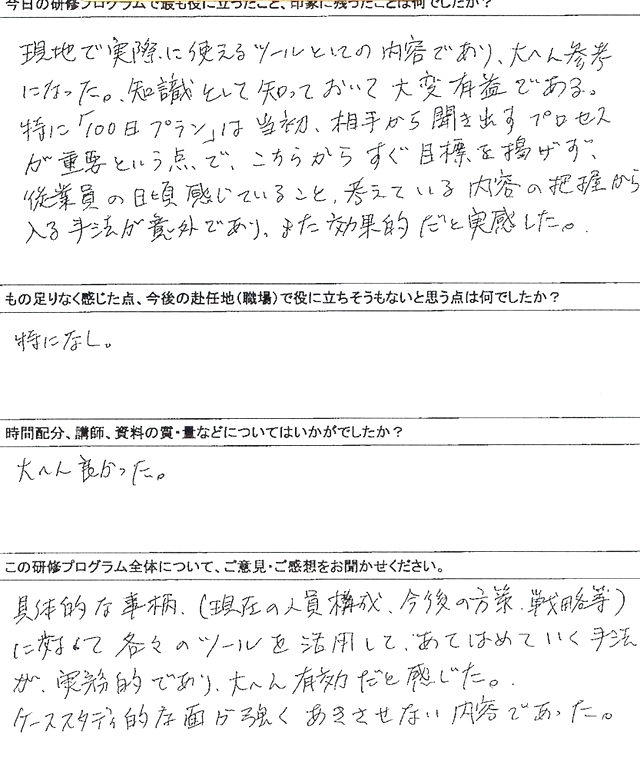 今日の研修プログラムで最も役に立ったこと、印象に残ったことは何でしたか？
現地で実際に使えるツールとしての内容であり、大へん参考
になった。知識として知っておいて大変有益である。
特に「100日プラン」は当初、相手から聞き出すプロセス
が重要という点で、こちらからすぐ目標を掲げず、
従業員の日頃感じていること、考えている内容の把握から
入る手法が意外であり、また効果的だと実感した。
もの足りなく感じた点、今後の赴任地（職場）で役に立ちそうもないと思う点は何でしたか？
特になし。
時間配分、講師、資料の質・量などについてはいかがでしたか？
大へん良かった。
この研修プログラム全体について、ご意見・ご感想をお聞かせください。
具体的な事柄、（現在の人員構成、今後の方策、戦略等）
に対して各々のツールを活用して、あてはめていく手法
が、実務的であり、大へん有効だと感じた。
ケーススタディ的な面が強くあきさせない内容であった。